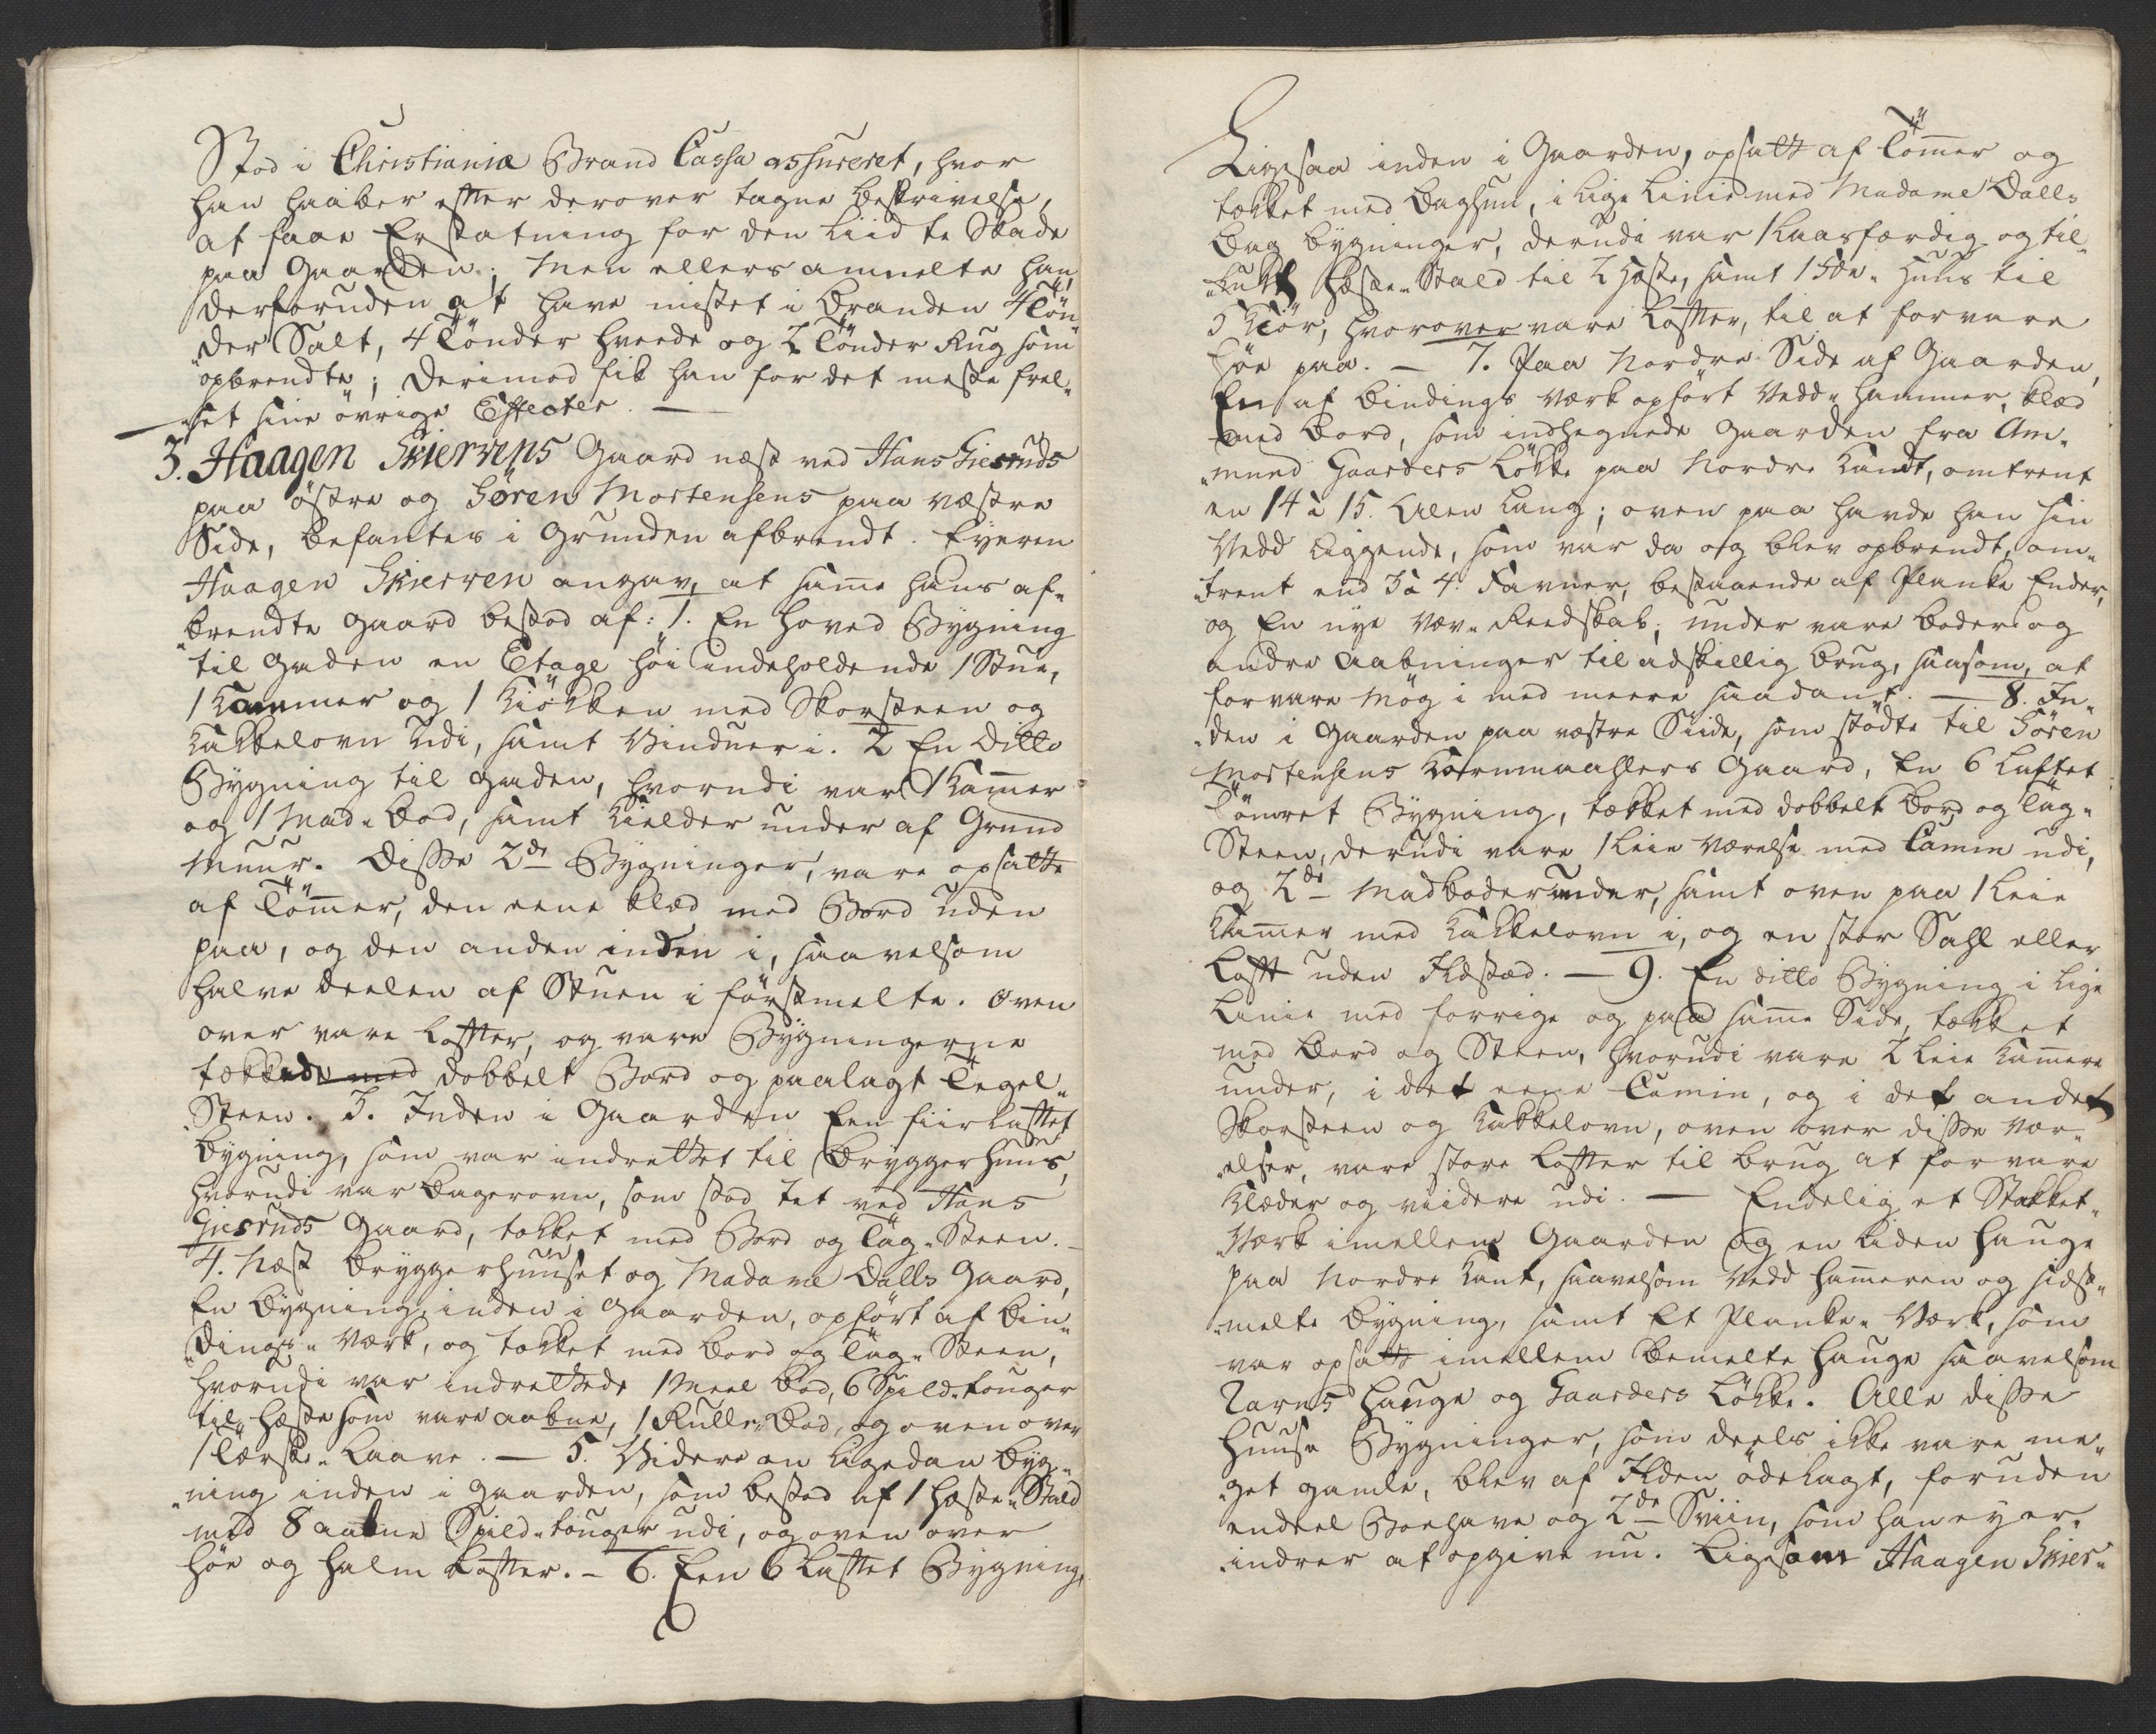 Stod i Christiania Brand Cassa assureret, hvor
han haaber efter derover tagne Beskrivelse,
at faae Erstatning for den Liidte Skade
paa Gaarden; Men ellers anmelte han,
derforuden at have mistet i Branden 4 Tön„
„der Salt, 4 Tönder Hvede og 2 Tönder Rug som
opbrendte; Derimod fik han for det meste frel„
„set sine övrige Effecter. —
3. Haagen Skiervens Gaard næst ved Hans Giesruds
paa östre og Sören Mortensens paa væstre
Side, befantes i Grunden afbrendt. Eyeren
Haagen Skierven angav, at samme hans af„
„brendte Gaard bestod af: 1. En Hoved Bygning
til Gaden en Etage höi indeholdende 1 Stue,
1 Kammer og 1 Kiökken med Skorsteen og
Kakkelovn udi, samt Vinduer i. 2 En Ditto
Bygning til Gaden, hvorudi var 1 Kammer
og 1 Mad-Bod, samt Kielder under af Grund
Muur. Disse 2de Bygninger, vare opsatte
af Tömmer, den eene klæd med Bord uden
paa, og den anden inden i, saavelsom
halve Deelen af Stuen i förstmelte. Oven
over vare Lofter, og vare Bygningerne
tækkede med dobbelt Bord og paalagt Tegel„
„Steen. 3. Inden i Gaarden Een fiirlaftet
Bygning, som var indrettet til Bryggerhuus,
hvorudi var Bagerovn, som stod tet ved Hans
Giesruds Gaard, tækket med Bord og Tag-Steen. –
4. Næst Bryggerhuuset og Madame Dalls Gaard,
En Bygning inden i Gaarden, opfört af Bin„
„dings-Værk, og tækket med Bord og Tag-Steen,
hvorudi var indrettede 1 Meel Bod, 6 Spild-touger
til Hæste som vare aabne, 1 Rulle-Bod, og oven over
1 Tærske-Laave. — 5. Videre en Ligedan Byg„
„ning inden i Gaarden, som bestod af 1 Hæste-Stald
med 8 aabne Spild-touger udi, og oven over
Höe og Halm Lofter. – 6. Een 6 Laftet Bygning,
Ligesaa inden i Gaarden, opsatt af Tömmer og
tækket med Baghun, i lige Linie med Madame Dalls
Bag bygninger, derudi var 1 Klarfærdig og til„
„lukt Hæste-Stald til 2 Hæste, samt 1 Fæe-Huus til
5 Kiör; hvorover vare Lofter, til at forvare
Höe paa. — 7. Paa Nordre Side af Gaarden,
En af Bindings Værk opfört Vedd-Hammer, klæd
med Bord, som indhegnede Gaarden fra Am„
„mund Gaarders Lökke paa Nordre Kandt, omtrent
en 14 à 15. Alen Lang; oven paa havde han sin
Vedd Liggende, som var da og blev opbrendt, om„
„trent end 3 à 4. Favner, bestaaende af Planke Ender,
og En nye Væv-Reedskab; under vare Boder og
andre Aabninger til adskillig brug, saasom, at
forvare Mög i med meere saadant. — 8. In„
„den i Gaarden paa væstre Siide, som stödte til Sören
Mortensens Kornmaahlers Gaard, En 6 Laftet
Tömret Bygning, tækket med dobbelt Bord og Tag„
Steen, derudi vare 1 Leie Værelse med Camin udi,
og 2de Madboder under, samt oven paa 1 Leie
Kammer med Kakkelovn i, og en stor Sahl eller
Loft uden Ildstæd. — 9. En ditto Bygning i lige
Linie med forrige og paa samme Side, tækket
med Bord og Steen, hvorudi vare 2 Leie Kammere
under, i det eene Camin, og i det andet
Skorsteen og Kakkelovn, oven over disse Vær„
„elser, vare store Lofter til brug at forvare
Klæder og viidere udi. — Endelig et Stakket„
„Værk imellem Gaarden og en Liden Hauge
paa Nordre Kant, saavelsom Vedd Hammeren og sidst„
„melte Bygning, samt Et Planke-Værk, som
var opsatt imellem bemelte Hauge saavelsom
Hauge og Gaarders Lökke. Alle disse
Huuse Bygninger, som deels ikke vare me„
„get gamle, blev af Ilden ödelagt, foruden
endeel Boehave og 2de Sviin, som han ey er„
„indrer at opgive nu. Ligesom Haagen Skier„